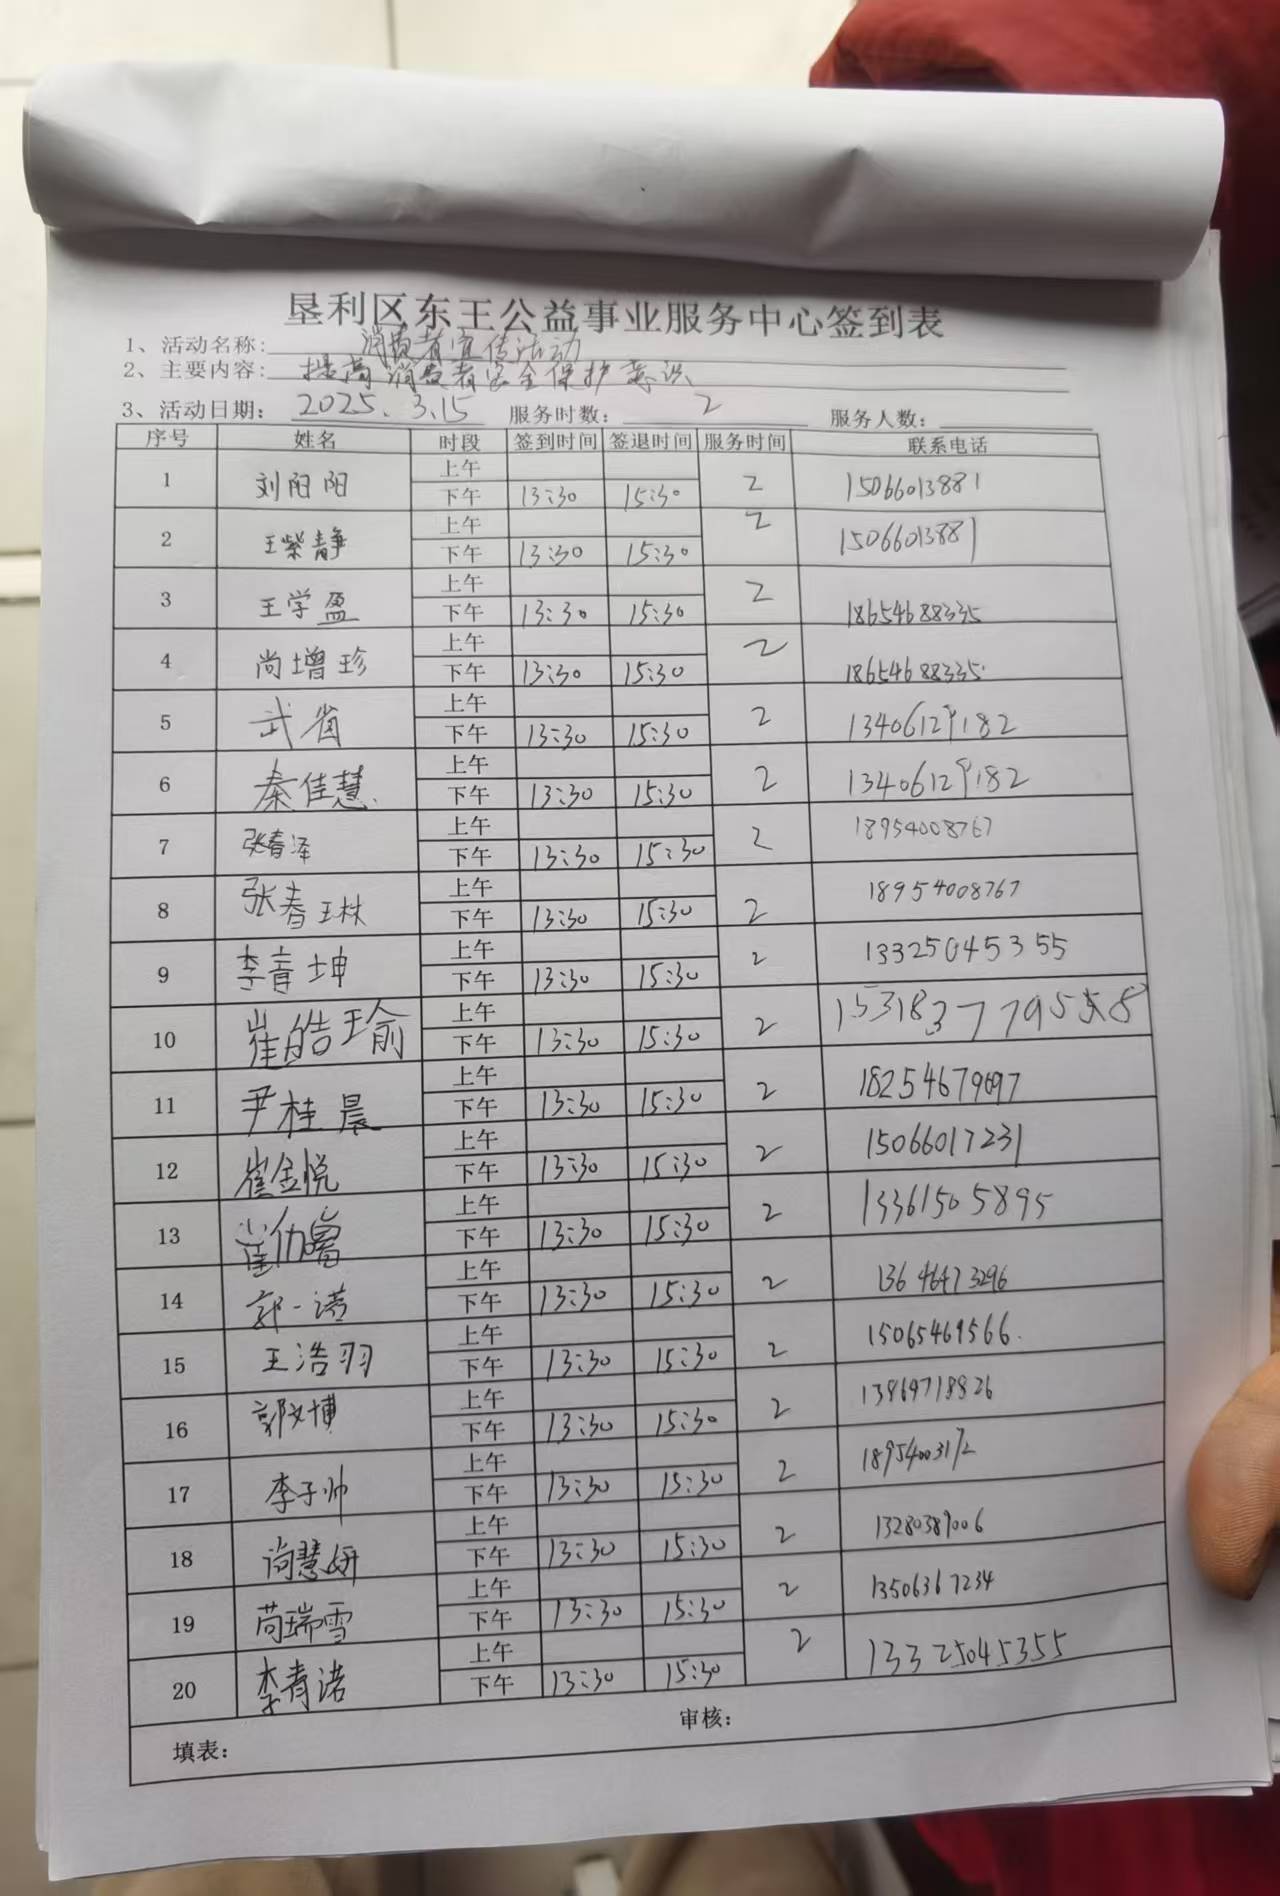 垦利区东王公益事业服务中心签到表
1、活动名称: 消费者宣传活动
2、主要内容: 提高消费者安全保护意识
3、活动日期: 2025.3.15 服务时数: 2 服务人数:
序号 姓名 时段 签到时间 签退时间 服务时间 联系电话
1 刘阳阳 上午 2 15066013881
下午 13:30 15:30
2 王紫静 上午 2 15066013881
下午 13:30 15:30
3 王学盈 上午 2 18654688335
下午 13:30 15:30
4 尚增珍 上午 2 18654688335
下午 13:30 15:30
5 武省 上午 2 13406129182
下午 13:30 15:30
6 秦佳慧 上午 2 13406129182
下午 13:30 15:30
7 张春泽 上午 2 18954008767
下午 13:30 15:30
8 张春琳 上午 2 18954008767
下午 13:30 15:30
9 李青坤 上午 2 13325045355
下午 13:30 15:30
10 崔皓瑜 上午 2
下午 13:30 15:30
11 尹桂晨 上午 2 18254679697
下午 13:30 15:30
12 崔金悦 上午 2 15066017231
下午 13:30 15:30
13 崔 上午 2 13361505895
下午 13:30 15:30
14 郭一诺 上午 2 13646473296
下午 13:30 15:30
15 王浩羽 上午 2 15065469566
下午 13:30 15:30
16 郭文博 上午 2 13969718826
下午 13:30 15:30
17 李子帅 上午 2 18954003172
下午 13:30 15:30
18 慧妍 上午 2 13280389006
下午 13:30 15:30
19 苘瑞雪 上午 2 13506367234
下午 13:30 15:30
20 李青诺 上午 2 13325045355
下午 13:30 15:30
填表: 审核: